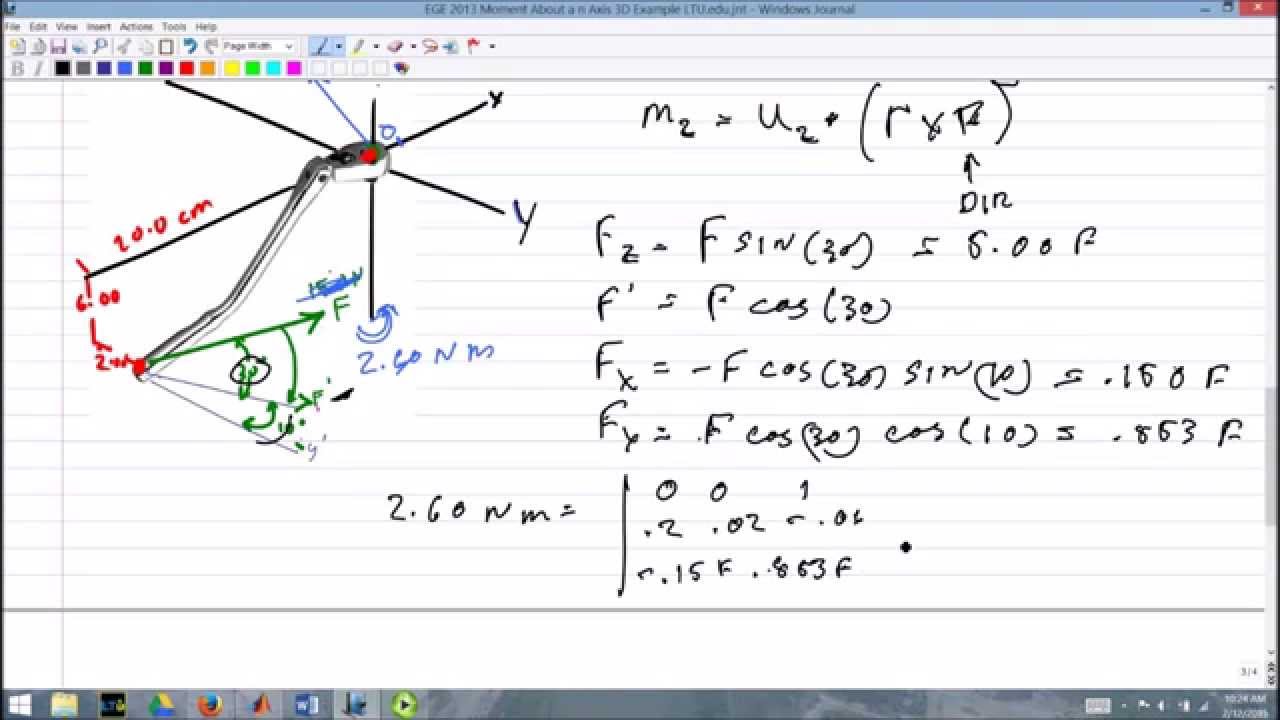 EGE 2013 Moment About a n Axis 3D Example LTU.edu.jnt - Windows Journal
File Edit View Insert Actions Tools Help
Page Width
B I
x
O
Y
20.0 cm
6.00
F
2.60 N m
F'
10°
y'
Mz = Uz • (r x F)
DIR
Fz = F sin(30) = 5.00 F
F' = F cos(30)
Fx = -F cos(30) sin(10) = .150 F
Fy = F cos(30) cos(10) = .853 F
2.60 N m =
0 0 1
.2 .02 -.06
-.15 F .853 F
3/4
10:24 AM